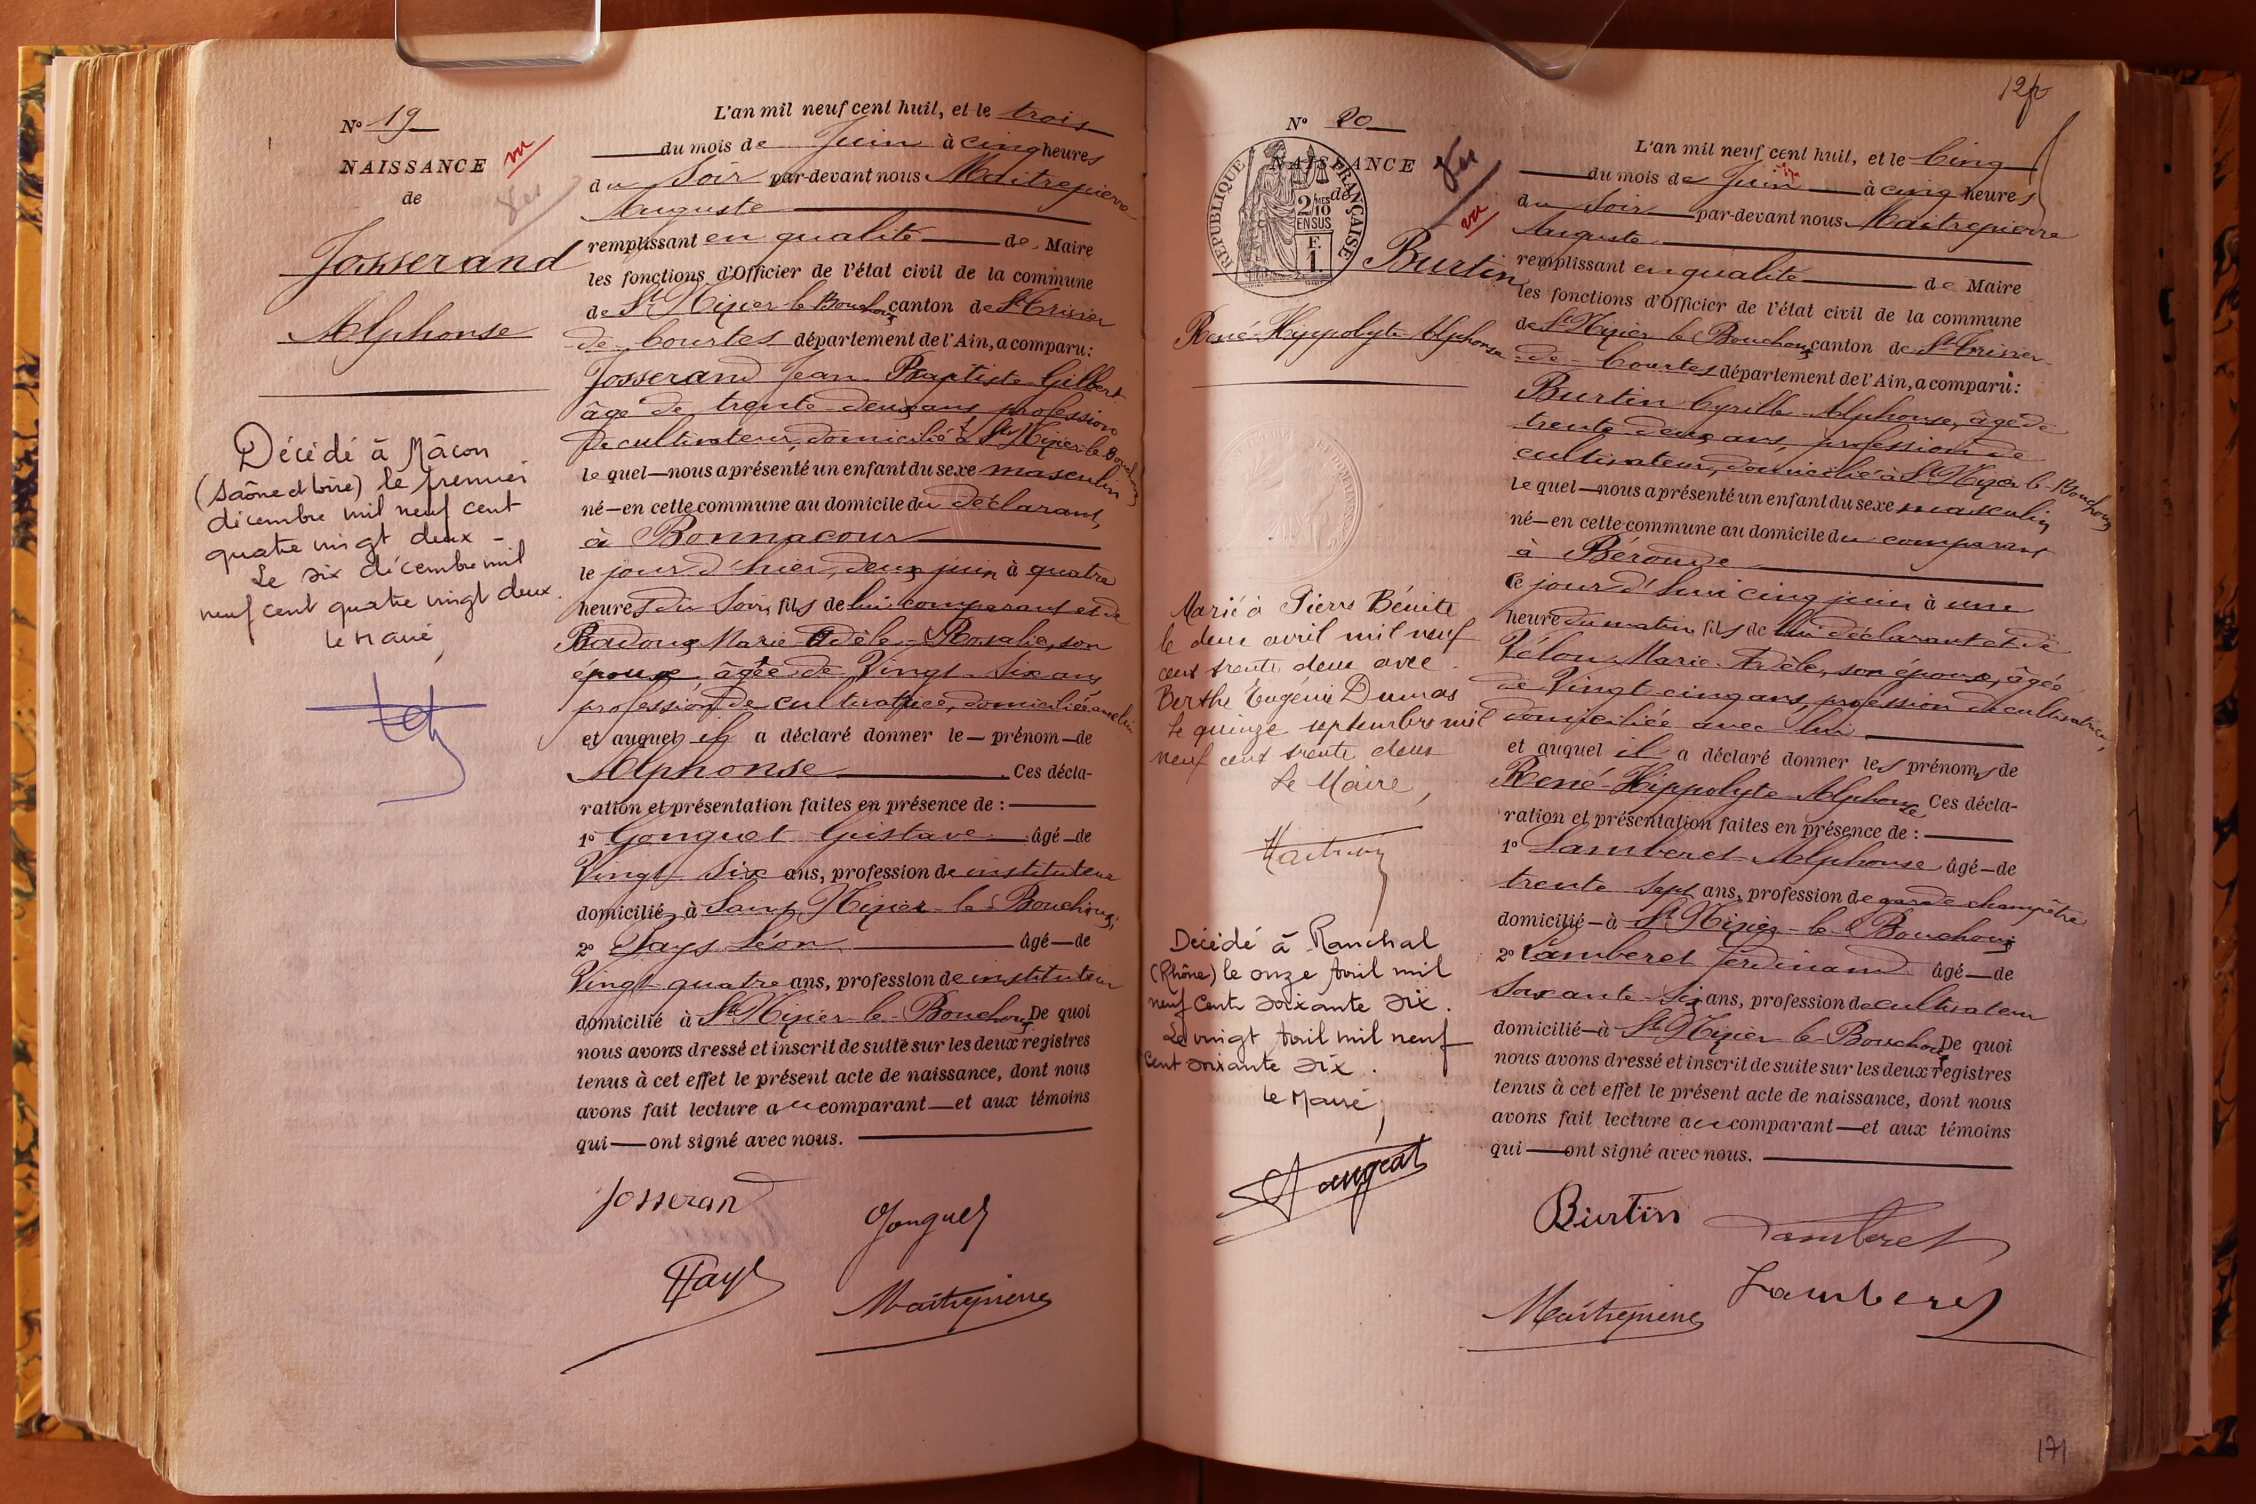 N° 19
NAISSANCE
de
Josserand
Alphonse
vu
Décédé à Mâcon
(Saône et Loire) le premier
décembre mil neuf cent
quatre vingt deux -
Le six décembre mil
neuf cent quatre vingt deux.
le Maire,
L'an mil neuf cent huit, et le trois
du mois de Juin à cinq heures
du Soir par-devant nous Maitrepierre
Auguste
remplissant en qualité de Maire
les fonctions d'Officier de l'état civil de la commune
de St Nizier-le-Bouchoux canton de St Trivier
de Courtes département de l'Ain, a comparu :
Josserand Jean Baptiste Gilbert
âgé de trente-deux ans, profession
de cultivateur, domicilié à St Nizier-le-Bouchoux
le quel nous a présenté un enfant du sexe masculin
né en cette commune au domicile du déclarant,
à Bonnacour
le jour d'hier, deux juin à quatre
heures du Soir, fils de lui comparant et de
Badoux Marie Adèle-Rosalie, son
épouse âgée de Vingt-six ans
profession de cultivatrice, domiciliée avec lui
et auquel il a déclaré donner le prénom de
Alphonse Ces décla-
ration et présentation faites en présence de :
1° Gonguet Gustave âgé de
Vingt-six ans, profession de instituteur
domicilié à Saint Nizier-le-Bouchoux;
2° Pays Léon âgé de
Vingt-quatre ans, profession de instituteur
domicilié à St Nizier-le-Bouchoux De quoi
nous avons dressé et inscrit de suite sur les deux registres
tenus à cet effet le présent acte de naissance, dont nous
avons fait lecture au comparant et aux témoins
qui ont signé avec nous.
Josserand
Gonguet
Pays
Maitrepierre
N° 20
NAISSANCE
de
RÉPUBLIQUE FRANÇAISE
2 MES
10
EN SUS
F.
1.
vu
Burtin
René-Hippolyte-Alphonse
Marié à Pierre Bénite
le deux avril mil neuf
cent trente deux avec
Berthe Eugénie Dumas
Le quinze septembre mil
neuf cent trente deux
Le Maire,
Décédé à Ranchal
(Rhône) le onze Avril mil
neuf cent soixante six.
Le vingt Avril mil neuf
cent soixante six.
le Maire,
L'an mil neuf cent huit, et le Cinq
du mois de Juin à cinq heures
du Soir par-devant nous Maitrepierre
Auguste
remplissant en qualité de Maire
les fonctions d'Officier de l'état civil de la commune
de St Nizier-le-Bouchoux canton de St Trivier
de Courtes département de l'Ain, a comparu :
Burtin Cyrille-Alphonse, âgé de
trente-deux ans, profession de
cultivateur, domicilié à St Nizier-le-Bouchoux
le quel nous a présenté un enfant du sexe masculin
né en cette commune au domicile du comparant
à Béroude
Ce jour d'hui cinq juin à une
heure du matin fils de lui déclarant et de
Vélon Marie-Adèle, son épouse, âgée
de Vingt-cinq ans, profession de cultivatrice,
domiciliée avec lui
et auquel il a déclaré donner les prénoms de
René-Hippolyte-Alphonse Ces décla-
ration et présentation faites en présence de :
1° Lamberet Alphonse âgé de
trente-sept ans, profession de garde champêtre
domicilié à St Nizier-le-Bouchoux
2° Lamberet Ferdinand âgé de
Soixante-six ans, profession de cultivateur
domicilié à St Nizier-le-Bouchoux De quoi
nous avons dressé et inscrit de suite sur les deux registres
tenus à cet effet le présent acte de naissance, dont nous
avons fait lecture au comparant et aux témoins
qui ont signé avec nous.
Burtin
Lamberet
Lamberet
Maitrepierre
171